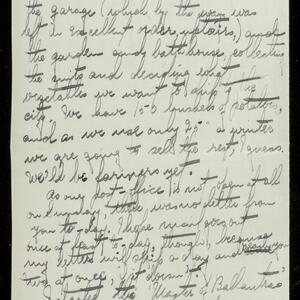 the garage (which by the way was
left in excellent order upstairs,) and
the garden and bathhouse collecting
the nuts and deciding what
vegetables we want to ship to the
city. We have 150 bushels of potatoes,
and as we use only 25 a winter
we are going to sell the rest, I guess.
We'll be farmers yet.
As our post-office is not open at all
on Sunday, there was no letter from
you to-day. I hope mail goes out
once at least to-day, though, because
my letters will skip a day and
two at once, if it doesn't.
the "Master of Ballantrae"